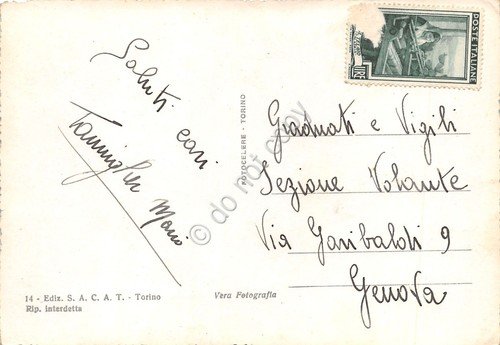 Saluti cari
POSTE ITALIANE
LIRE
FOTOCELERE - TORINO
Graduati e Vigili
Sezione Volante
Via Garibaldi 9
Genova
14 - Ediz. S. A. C. A. T. - Torino
Rip. interdetta
Vera Fotografia
do not copy